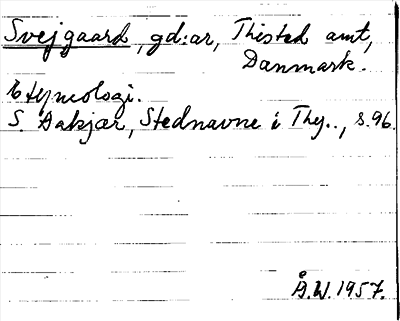 Svejgaard, gd:ar, Thisted amt,
Danmark.
Etymologi.
S. Aakjær, Stednavne i Thy.., s.96.
Å.W.1957.